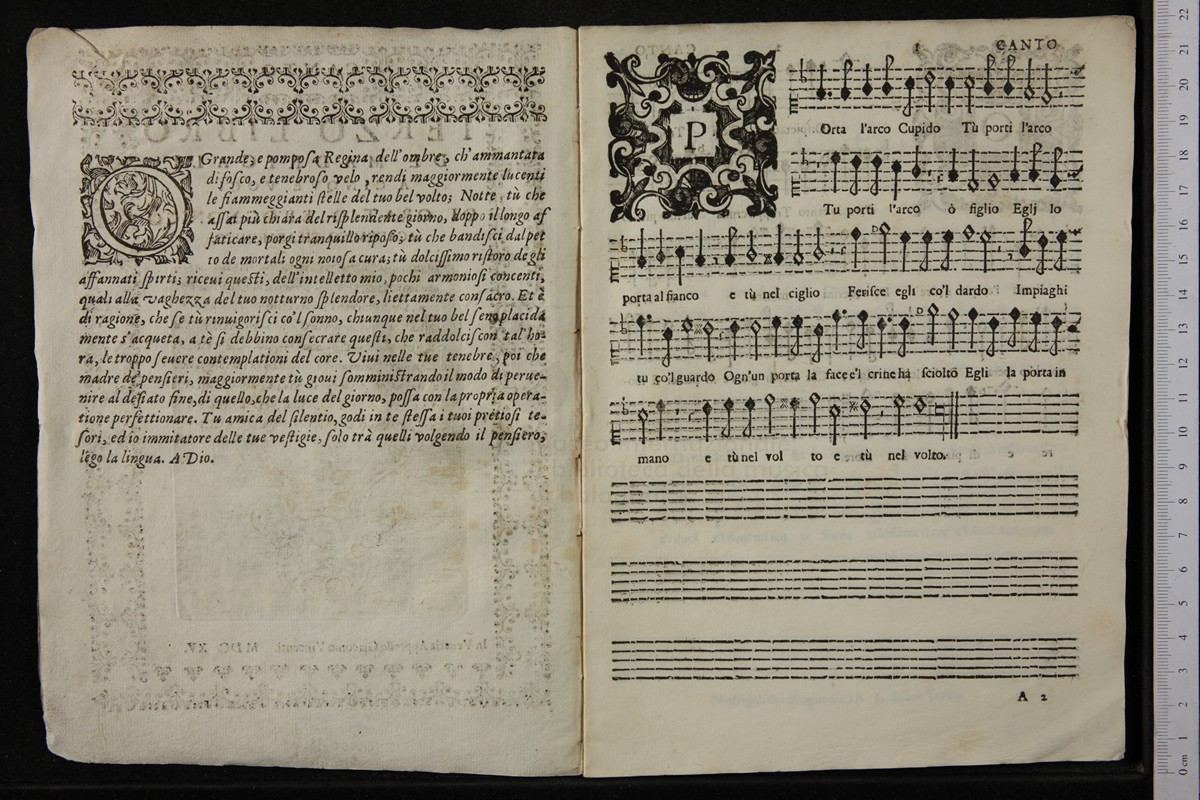 O Grande, e pomposa Regina dell'ombre, ch'ammantata
di fosco, e tenebroso velo, rendi maggiormente lucenti
le fiammeggianti stelle del tuo bel volto; Notte, tù che
assai più chiara del risplendente giorno, doppo il longo af
faticare, porgi tranquillo riposo; tù che bandisci dal pet
to de mortali ogni noiosa cura; tù dolcissimo ristoro de gli
affannati spirti; riceui questi, dell'intelletto mio, pochi armoniosi concenti,
quali alla vaghezza del tuo notturno splendore, liettamente consacro. Et è
di ragione, che se tù rinuigorisci co'l sonno, chiunque nel tuo bel seno placida
mente s'acqueta, a tè si debbino consecrare questi, che raddolciscon tal'ho-
ra, le troppo seuere contemplationi del core. Viui nelle tue tenebre, poi che
madre de' pensieri, maggiormente tù gioui somministrando il modo di perue-
nire al desiato fine, di quello, che la luce del giorno, possa con la propria opera-
tione perfettionare. Tu amica del silentio, godi in te stessa i tuoi pretiosi te-
sori, ed io immitatore delle tue vestigie, solo trà quelli volgendo il pensiero,
lego la lingua. A Dio.
In Venetia Appresso Giacomo Vincenti. M DC XV.
1 CANTO
P
Orta l'arco Cupido Tù porti l'arco
Tu porti l'arco ò figlio Egli lo
porta al fianco e tù nel ciglio Ferisce egli co'l dardo Impiaghi
tu co'l guardo Ogn'un porta la face e'l crine hà sciolto Egli la porta in
mano e tù nel vol to e tù nel volto.
A 2
22
21
20
19
18
17
16
15
14
13
12
11
10
9
8
7
6
5
4
3
2
1
0 cm